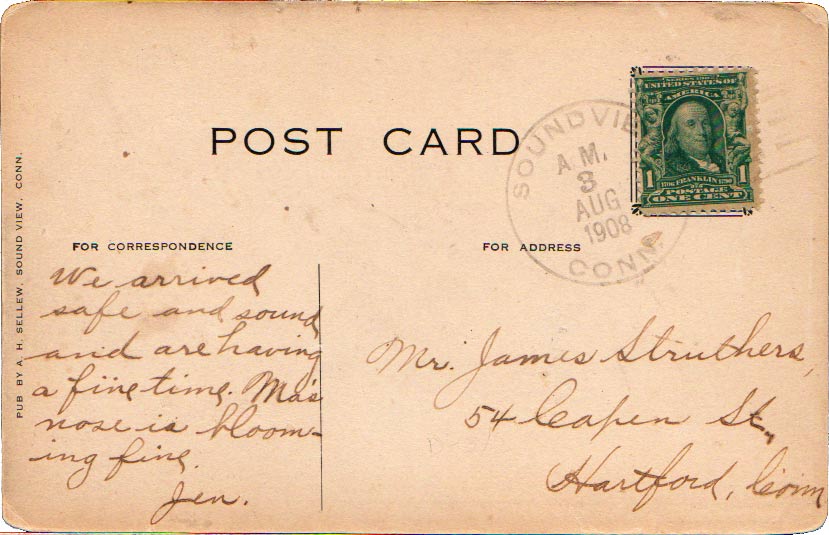 POST CARD
SOUNDVIE
A.M.
3
AUG
1908
CONN.
SERIES 1902
UNITED STATES OF
AMERICA
1706 FRANKLIN 1790
1 1
POSTAGE
ONE CENT
PUB BY A. H. SELLEW, SOUND VIEW, CONN.
FOR CORRESPONDENCE
We arrived
safe and sound
and are having
a fine time. Ma's
nose is bloom-
ing fine.
Jen.
FOR ADDRESS
Mr. James Struthers,
54 Capen St.,
Hartford, Conn